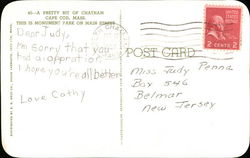 45—A PRETTY BIT OF CHATHAM
CAPE COD, MASS.
THIS IS MONUMENT PARK ON MAIN STREET
Dear Judy,
I'm sorry that you
had a opration
I hope you're all better
Love Cathy
POST CARD
2 CENTS 2
Miss Judy Penna
Box 546
Belmar
New Jersey